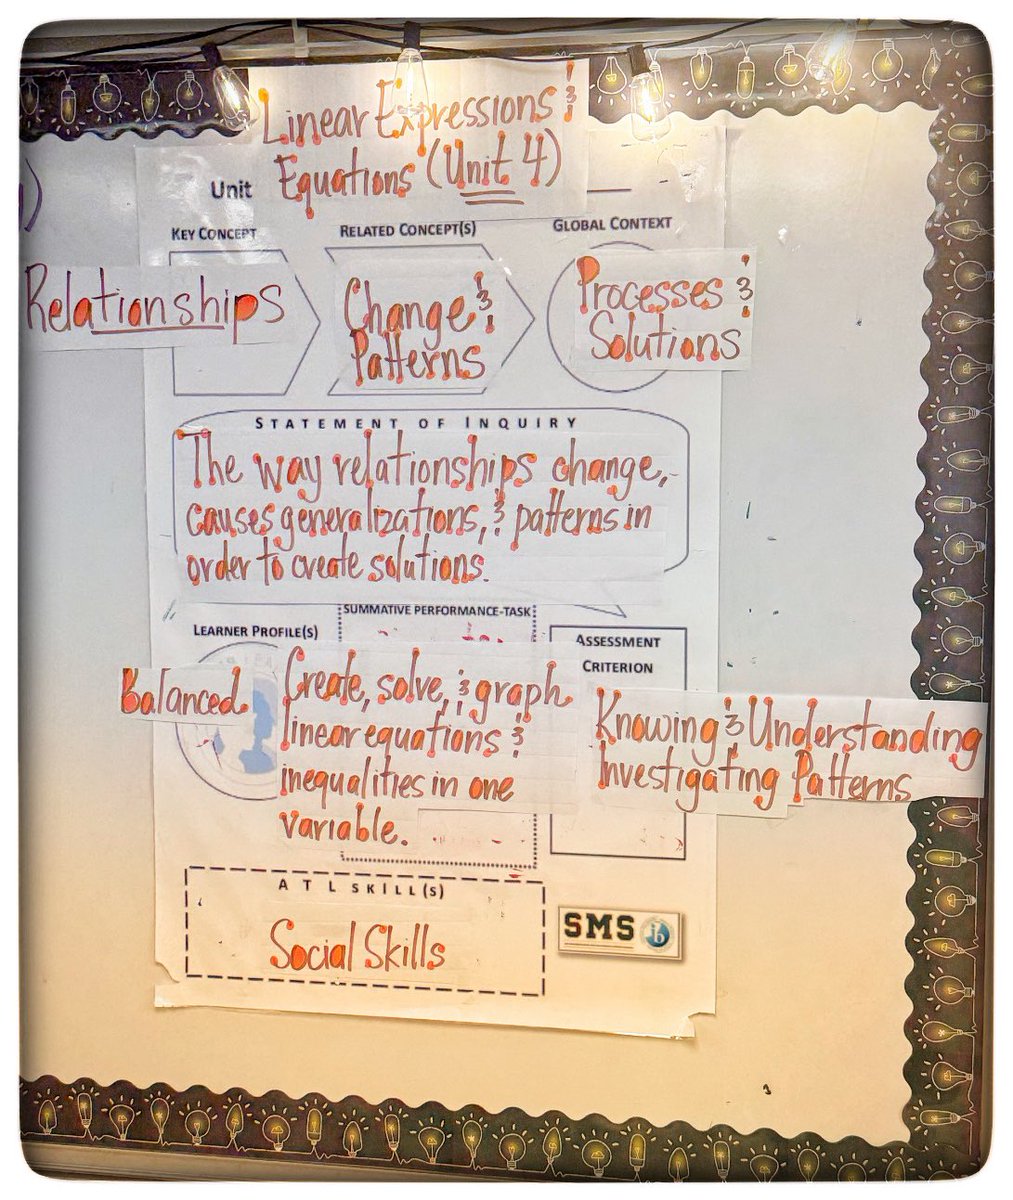 Linear Expressions &
Unit Equations (Unit 4)
KEY CONCEPT
RELATED CONCEPT(S)
GLOBAL CONTEXT
Relationships
Change &
Patterns
Processes &
Solutions
STATEMENT OF INQUIRY
The way relationships change,
causes generalizations, & patterns in
order to create solutions.
LEARNER PROFILE(S)
SUMMATIVE PERFORMANCE TASK
ASSESSMENT
CRITERION
Balanced
Create, solve, & graph
linear equations &
inequalities in one
variable.
Knowing & Understanding
Investigating Patterns
ATL SKILL(S)
Social Skills
SMS ib